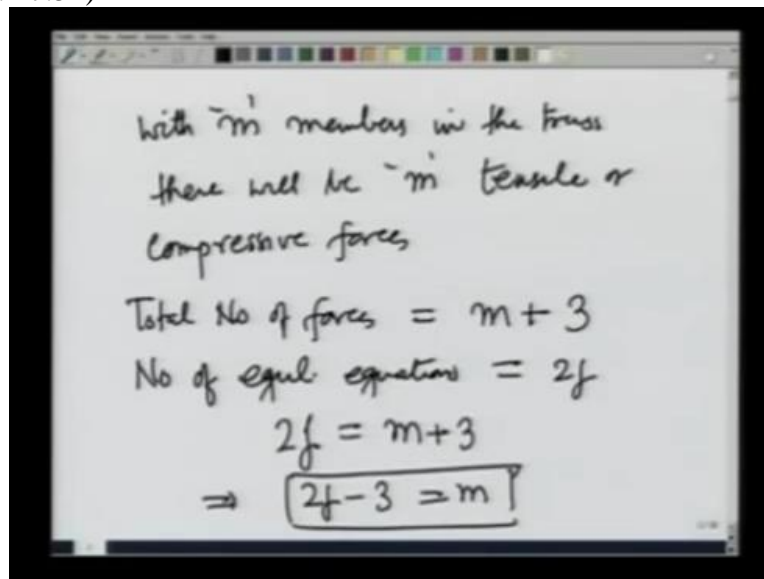 with "m" members in the truss
there will be "m" tensile or
compressive forces
Total No of forces = m + 3
No of equl. equations = 2j
2j = m+3
⇒ 2j - 3 = m